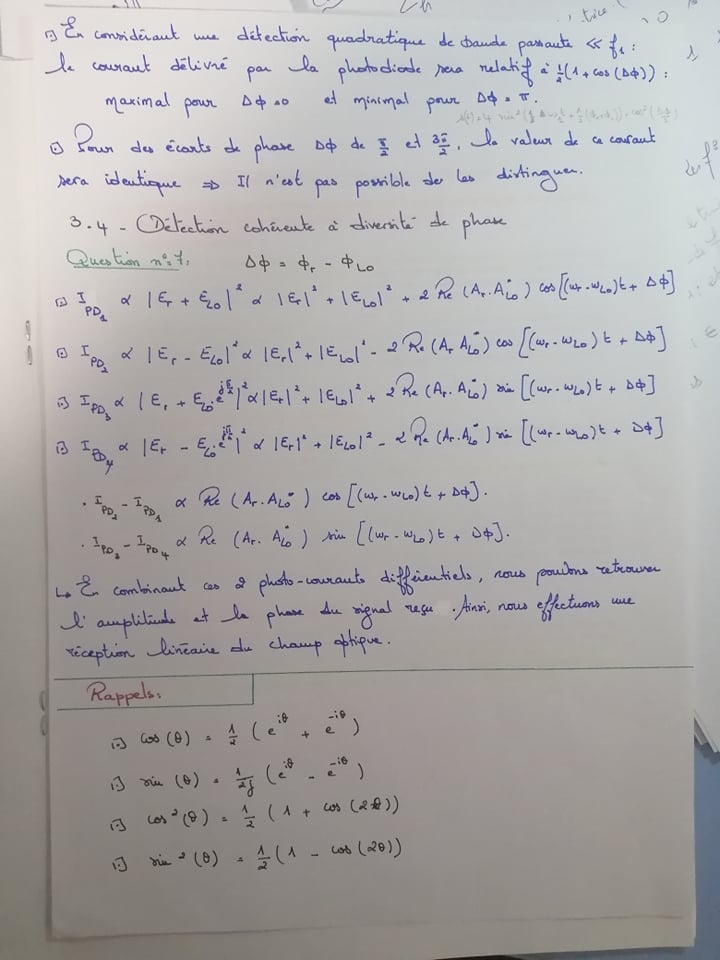 En considérant une détection quadratique de bande passante << f₁ :
le courant délivré par la photodiode sera relatif à ½(1 + cos(Δϕ)) :
maximal pour Δϕ = 0 et minimal pour Δϕ = π.
Pour des écarts de phase Δϕ de π/2 et 3π/2, la valeur de ce courant
sera identique ⇒ Il n'est pas possible de les distinguer.
3.4 - Détection cohérente à diversité de phase
Question n°7: Δϕ = ϕr - ϕLO
I_PD₁ ∝ |Er + ELO|² ∝ |Er|² + |ELO|² + 2 Re(Ar.ALO*) cos[(ωr - ωLO)t + Δϕ]
I_PD₂ ∝ |Er - ELO|² ∝ |Er|² + |ELO|² - 2 Re(Ar ALO*) cos[(ωr - ωLO)t + Δϕ]
I_PD₃ ∝ |Er + ELO.e^(jπ/2)|² ∝ |Er|² + |ELO|² + 2 Re(Ar.ALO*) sin[(ωr - ωLO)t + Δϕ]
I_PD₄ ∝ |Er - ELO.e^(jπ/2)|² ∝ |Er|² + |ELO|² - 2 Re(Ar.ALO*) sin[(ωr - ωLO)t + Δϕ]
. I_PD₂ - I_PD₁ ∝ Re(Ar.ALO*) cos[(ωr - ωLO)t + Δϕ].
. I_PD₃ - I_PD₄ ∝ Re(Ar.ALO*) sin[(ωr - ωLO)t + Δϕ].
↳ En combinant ces 2 photo-courants différentiels, nous pouvons retrouver
l'amplitude et la phase du signal reçu. Ainsi, nous effectuons une
réception linéaire du champ optique.
Rappels:
cos(θ) = ½(e^(iθ) + e^(-iθ))
sin(θ) = 1/2j (e^(iθ) - e^(-iθ))
cos²(θ) = ½(1 + cos(2θ))
sin²(θ) = ½(1 - cos(2θ))